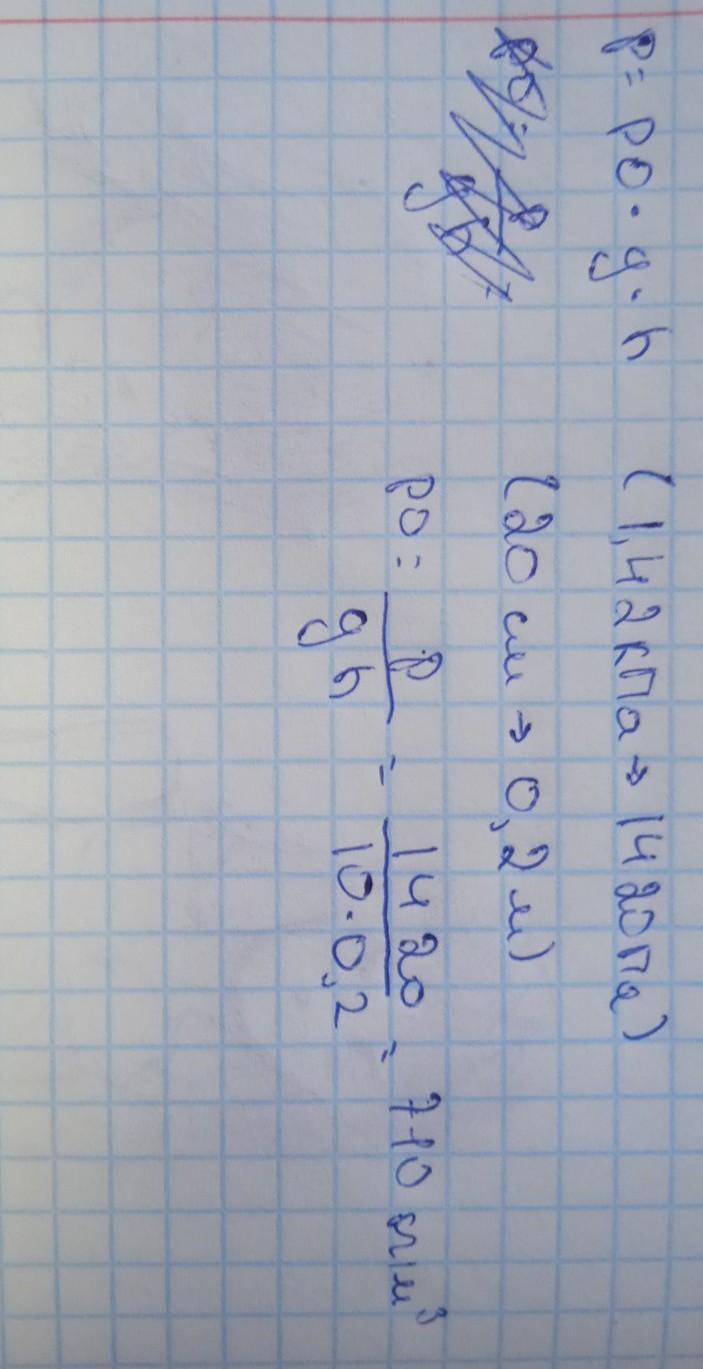 p = po · g · h (1,42 кПа → 1420 Па)
(20 см → 0,2 м)
po = p / gh = 1420 / 10 · 0,2 = 710 кг/м³